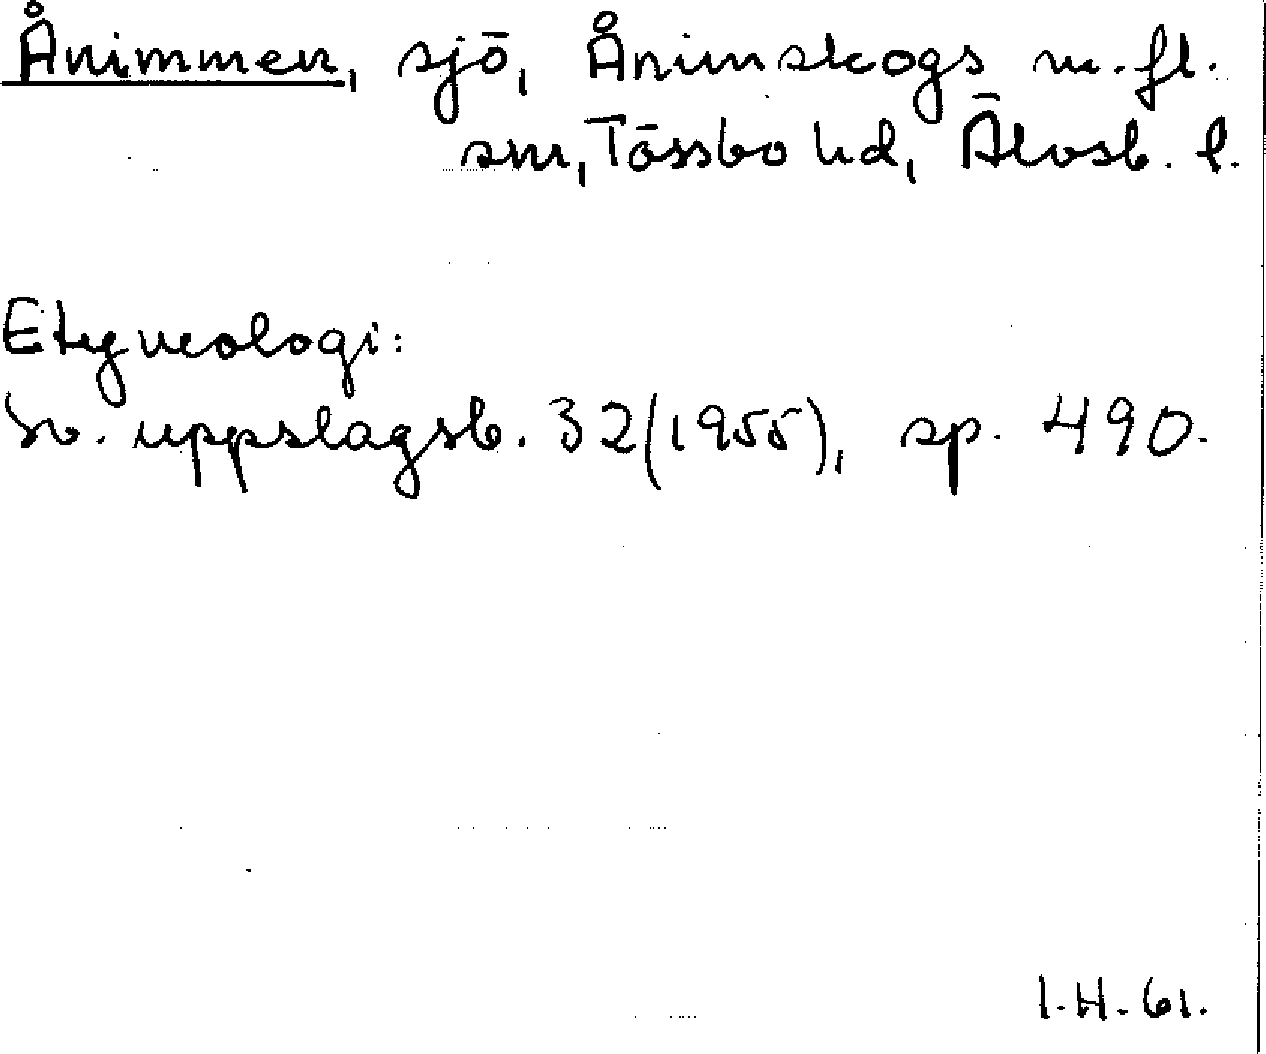 Ånimmen, sjö, Ånimskogs m.fl.
snr, Tössbo hd, Älvsb. l.
Etymologi:
Sv. uppslagsb. 32(1955), sp. 490.
I.H. 61.